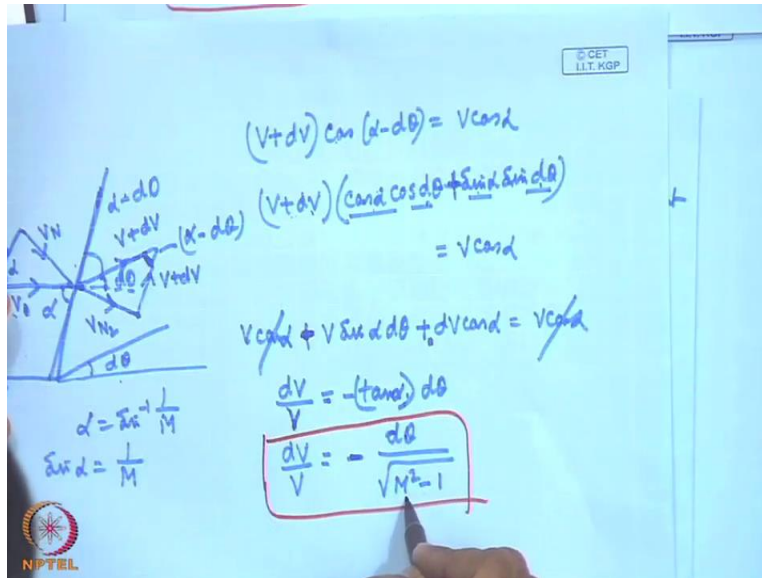 © CET
I.I.T. KGP
(V+dV) cos (α-dθ) = V cosα
(V+dV) (cosα cos dθ + sinα sin dθ)
= V cosα
V cosα + V sin α dθ + dV cosα = V cosα
dV/V = -(tanα) dθ
dV/V = - dθ/√M²-1
α-dθ
V+dV
(α-dθ)
VN
dθ
V+dV
α
α
VN2
dθ
α = sin⁻¹ 1/M
sin α = 1/M
NPTEL